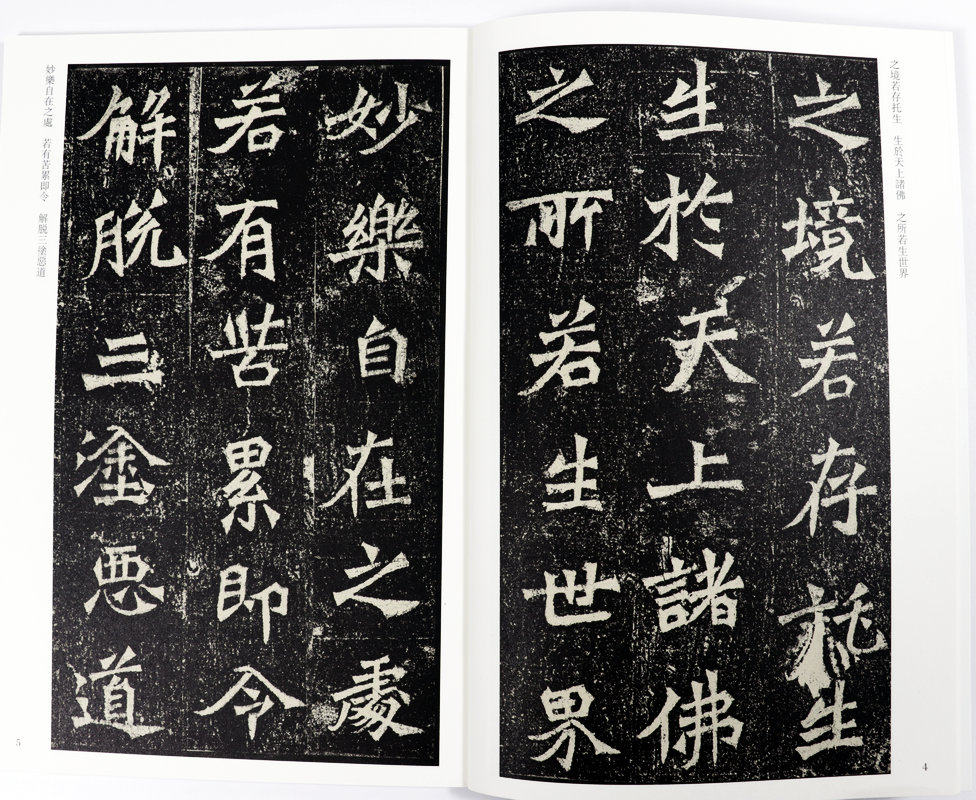 之境若存托生 生於天上諸佛 之所若生世界
之境若存託生
生於天上諸佛
之所若生世界
4
妙樂自在之處
若有苦累即令
解脫三塗惡道
妙樂自在之處 若有苦累即令 解脱三塗惡道
5